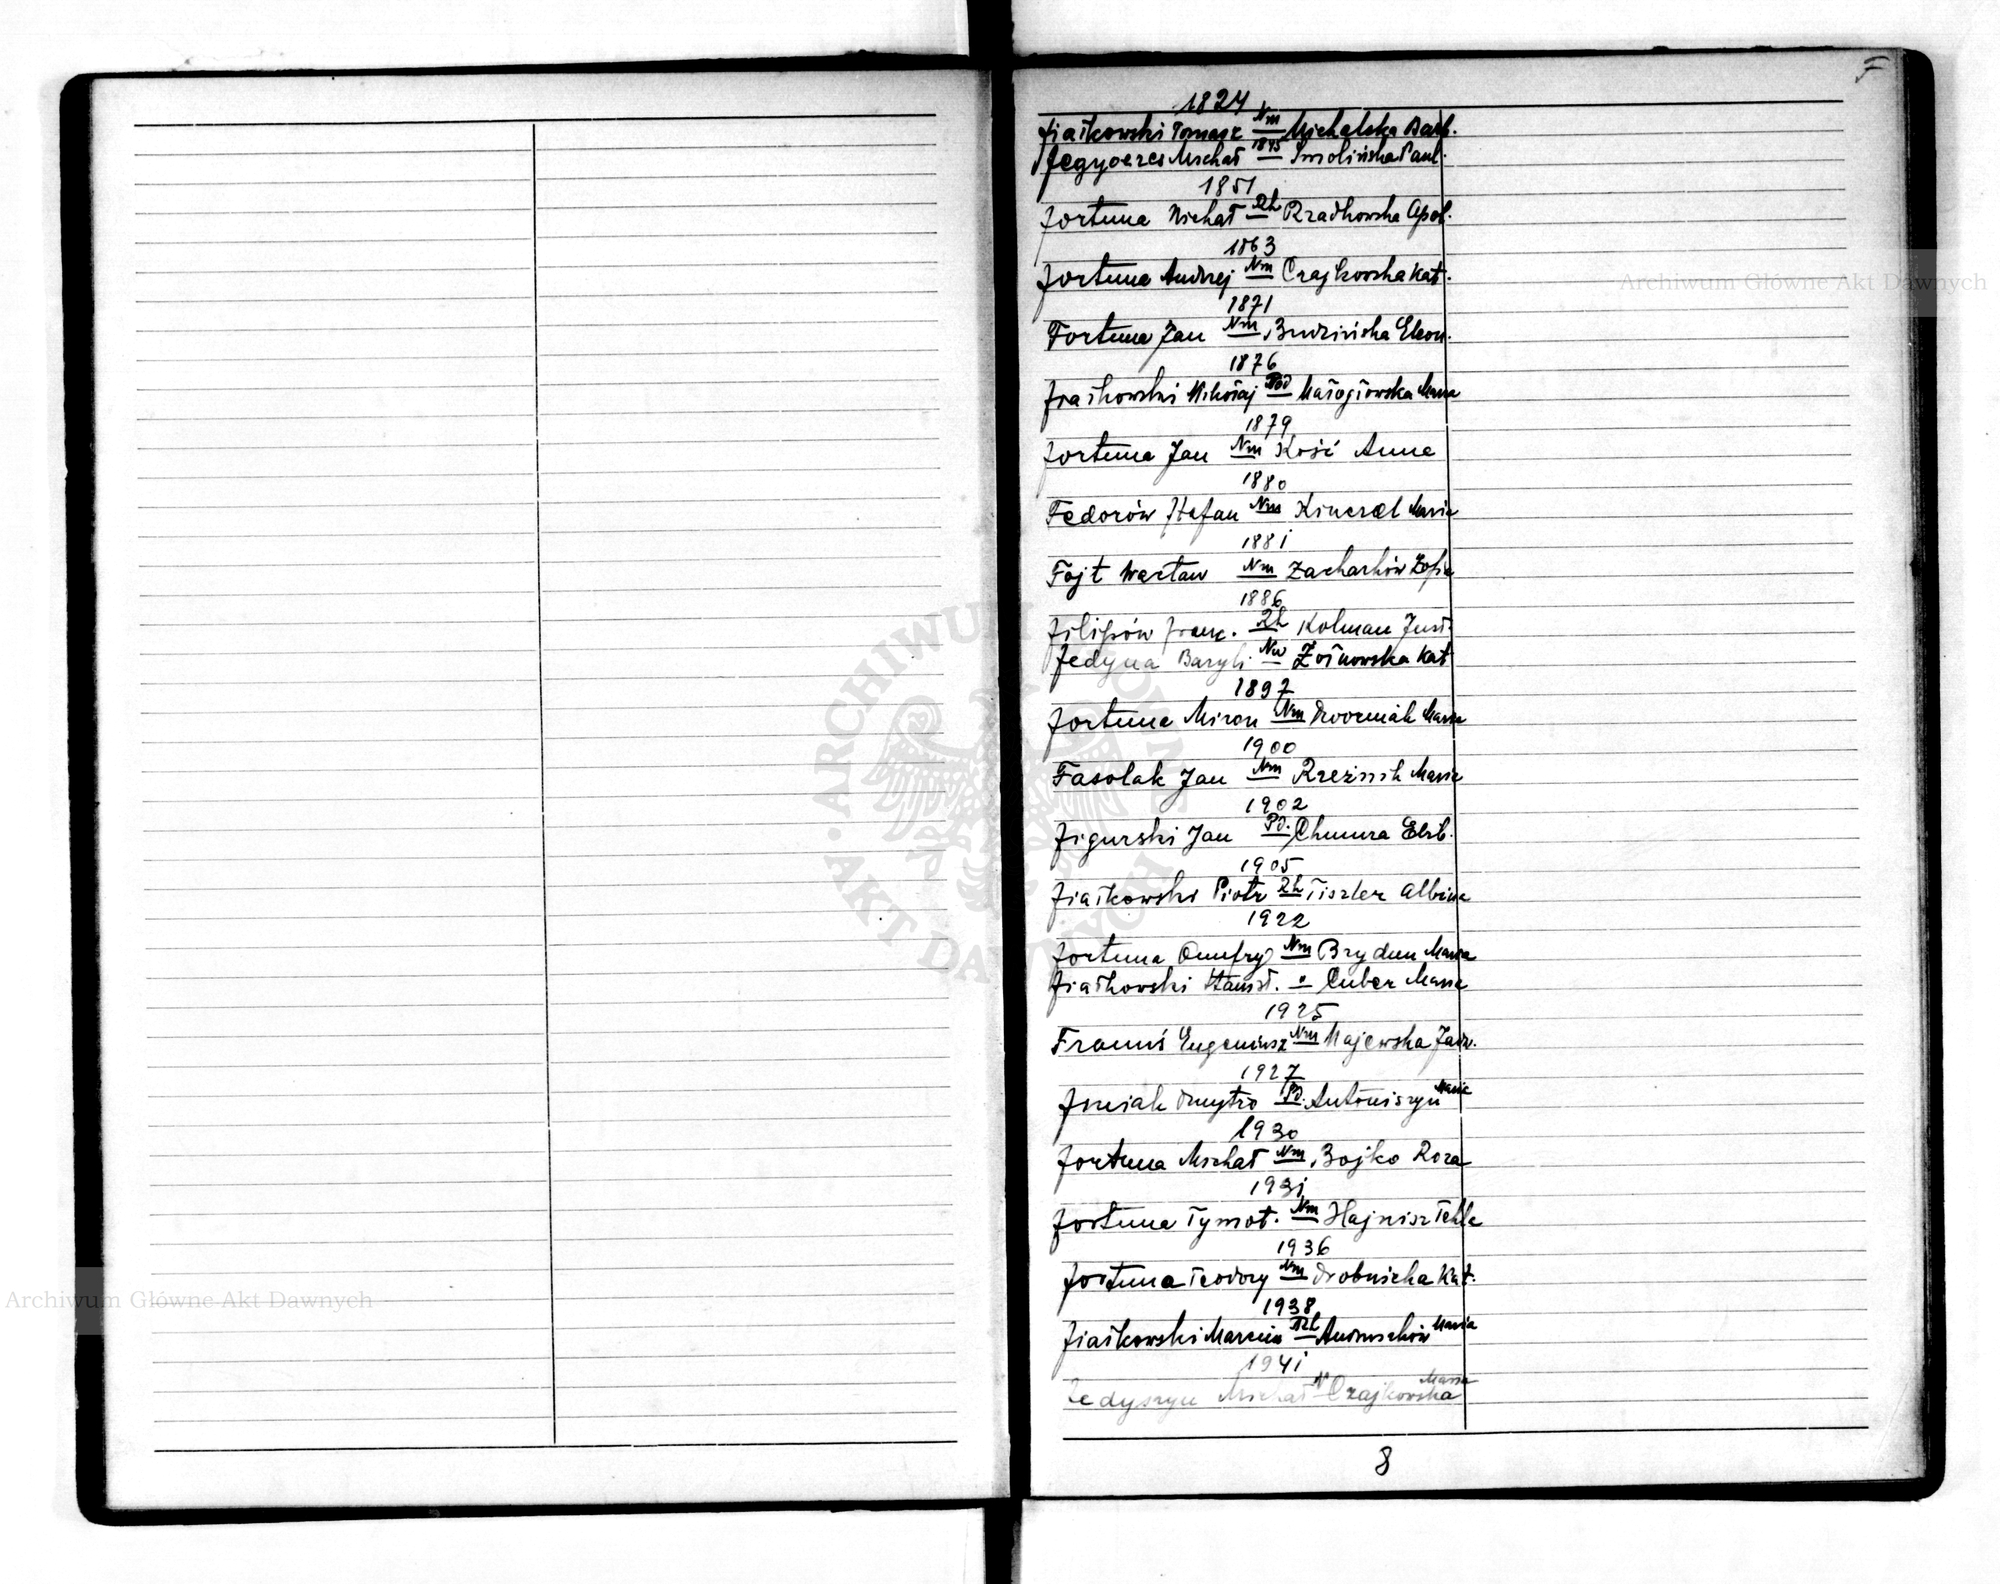 F
1824
Fiałkowski Tomasz Nm Michalska Barb.
Fegyveres Michał 1845 Smolińska Paul.
1851
Fortuna Michał Rh Rzadkowska Apol.
1863
Fortuna Andrzej Nm Czajkowska Kat.
1871
Fortuna Jan Nm Budzińska Eleon.
1876
Fiałkowski Mikołaj Pd Małogłowska Maria
1879
Fortuna Jan Nm Kość Anna
1880
Fedorów Stefan Nm Kineral Maria
1881
Fojt Wacław Nm Zacharków Zofia
1886
Filipów Franc. Rh Kolman Just.
Fedyna Bazyli Nw Żółnowska Kat
1897
Fortuna Miron Nm Dworniak Maria
1900
Fasolak Jan Nm Rzeźnik Maria
1902
Figurski Jan Pd. Chmura Elżb.
1905
Fiałkowski Piotr Rh Tiszler Albina
1922
Fortuna Onufry Nm Brydun Maria
Fiałkowski Stanisł. " Cuber Maria
1925
Franuś Eugeniusz Nm Majewska Jadw.
1927
Dmytro Pd. Antoniszyn Maria
1930
Fortuna Michał Nm Bojko Roza
1931
Fortuna Tymot. Nm Hajnisz Tekla
1936
Fortuna Teodozy Nm Drobnicka Kat.
1938
Fiałkowski Marcin Rh Andruszków Maria
1941
Fedyszyn Michał N Czajkowska Maria
8
Archiwum Główne Akt Dawnych
Archiwum Główne Akt Dawnych
ARCHIWUM GŁÓWNE AKT DAWNYCH